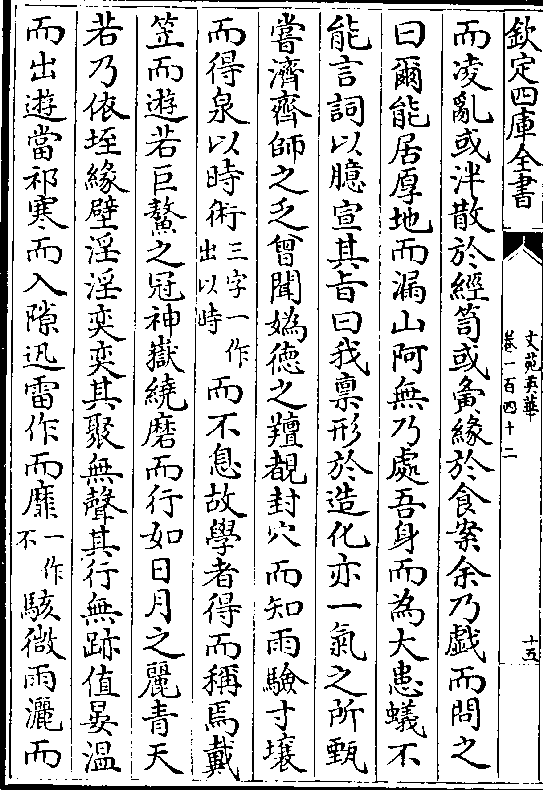 欽定四庫全書
文苑英華
卷一百四十二
十五
而凌亂或泮散於經笥或夤緣於食案余乃戯而問之
曰爾能居厚地而漏山阿無乃處吾身而為大患蟻不
能言詞以臆宣其旨曰我禀形於造化亦一氣之所甄
嘗濟齊師之乏曾聞媯徳之羶覩封穴而知雨驗寸壤
而得泉以時術三字一作出以時而不息故學者得而稱焉戴
笠而遊若巨鰲之冠神嶽繞磨而行如日月之麗青天
若乃依垤緣壁淫淫奕奕其聚無聲其行無跡值晏温
而出遊當祁寒而入隙迅雷作而靡一作不駭微雨灑而